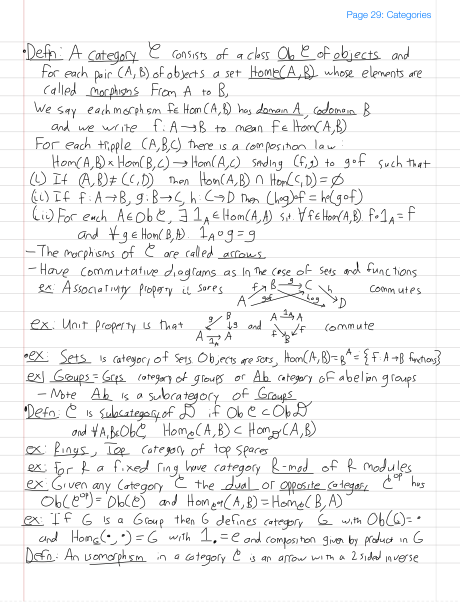 Page 29: Categories
• Defn: A category C consists of a class Ob C of objects and
for each pair (A,B) of objects a set Home(A,B) whose elements are
called morphisms from A to B,
We say each morphism f∈Hom(A,B) has domain A, codomain B
and we write f:A→B to mean f∈Hom(A,B)
For each tripple (A,B,C) there is a composition law:
Hom(A,B)×Hom(B,C)→Hom(A,C) sending (f,g) to g∘f such that
(i) If (A,B)≠(C,D) then Hom(A,B)∩Hom(C,D)=∅
(ii) If f:A→B, g:B→C, h:C→D then (h∘g)∘f = h∘(g∘f)
(iii) For each A∈Ob C, ∃ 1_A∈Hom(A,A) s.t. ∀f∈Hom(A,B) f∘1_A=f
and ∀g∈Hom(B,A) 1_A∘g=g
– The morphisms of C are called arrows
– Have commutative diagrams as in the case of sets and functions
ex: Associativity property ii says A f B g C h D g∘f h∘g commutes
ex: Unit property is that B g A 1_A A g and A 1_A A f B f commute
• ex: Sets is category of sets. Objects are sets, Hom(A,B)=B^A={f:A→B functions}
ex: Groups = Grps category of groups or Ab category of abelian groups
– Note Ab is a subcategory of Groups
• Defn: C is subcategory of D if Ob C ⊂ Ob D
and ∀A,B∈Ob C, Hom_C(A,B) ⊂ Hom_D(A,B)
ex: Rings, Top category of top spaces
ex: for R a fixed ring have category R-mod of R modules
ex: Given any category C the dual or opposite category C^op has
Ob(C^op)=Ob(C) and Hom_C^op(A,B)=Hom_C(B,A)
ex: If G is a Group then G defines category G with Ob(G)=•
and Hom_G(•,•)=G with 1_•=e and composition given by product in G
Defn: An isomorphism in a category C is an arrow with a 2 sided inverse